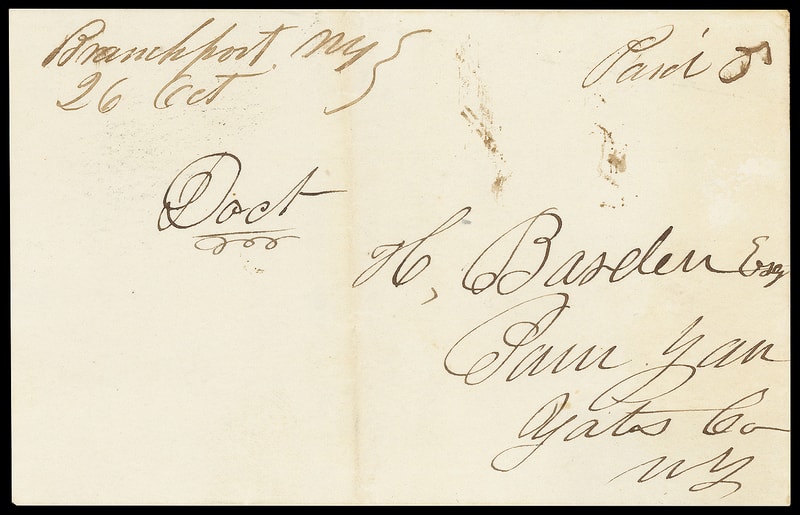 Branchport. NY }
26 Oct
Paid 5
Doct
H, Barden Esq
Penn Yan
Yates Co
NY